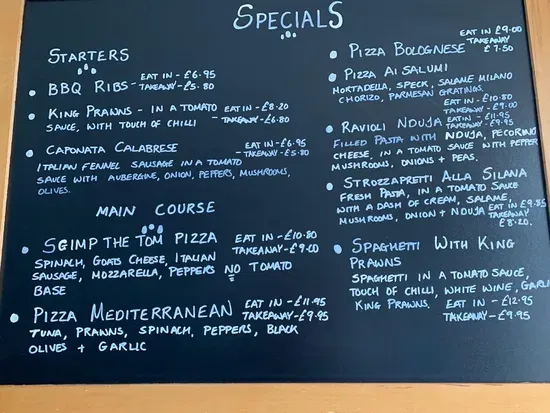 SPECIALS
STARTERS
BBQ RIBS - EAT IN - £6.95
TAKEAWAY - £5.80
KING PRAWNS - IN A TOMATO EAT IN - £8.20
SAUCE, WITH TOUCH OF CHILLI - TAKEAWAY - £6.80
CAPONATA CALABRESE - EAT IN - £6.95
TAKEAWAY - £5.80
ITALIAN FENNEL SAUSAGE IN A TOMATO
SAUCE WITH AUBERGINE, ONION, PEPPERS, MUSHROOMS,
OLIVES.
MAIN COURSE
SGIMP THE TOM PIZZA EAT IN - £10.80
TAKEAWAY - £9.00
SPINACH, GOATS CHEESE, ITALIAN
SAUSAGE, MOZZARELLA, PEPPERS NO TOMATO
BASE
PIZZA MEDITERRANEAN EAT IN - £11.95
TAKEAWAY - £9.95
TUNA, PRAWNS, SPINACH, PEPPERS, BLACK
OLIVES + GARLIC
PIZZA BOLOGNESE EAT IN £9.00
TAKEAWAY
£7.50
PIZZA AI SALUMI
MORTADELLA, SPECK, SALAME MILANO
CHORIZO, PARMESAN GRATINGS.
EAT IN - £10.80
TAKEAWAY - £9.00
RAVIOLI NDUJA EAT IN - £11.95
TAKEAWAY - £9.95
FILLED PASTA WITH NDUJA, PECORINO
CHEESE, IN A TOMATO SAUCE WITH PEPPER
MUSHROOMS, ONIONS + PEAS.
STROZZAPRETTI ALLA SILANA
FRESH PASTA, IN A TOMATO SAUCE
WITH A DASH OF CREAM, SALAME, EAT IN £9.85
MUSHROOMS, ONION + NDUJA TAKEAWAY
£8.20.
SPAGHETTI WITH KING
PRAWNS
SPAGHETTI IN A TOMATO SAUCE,
TOUCH OF CHILLI, WHITE WINE, GARLIC
KING PRAWNS. EAT IN - £12.95
TAKEAWAY - £9.95